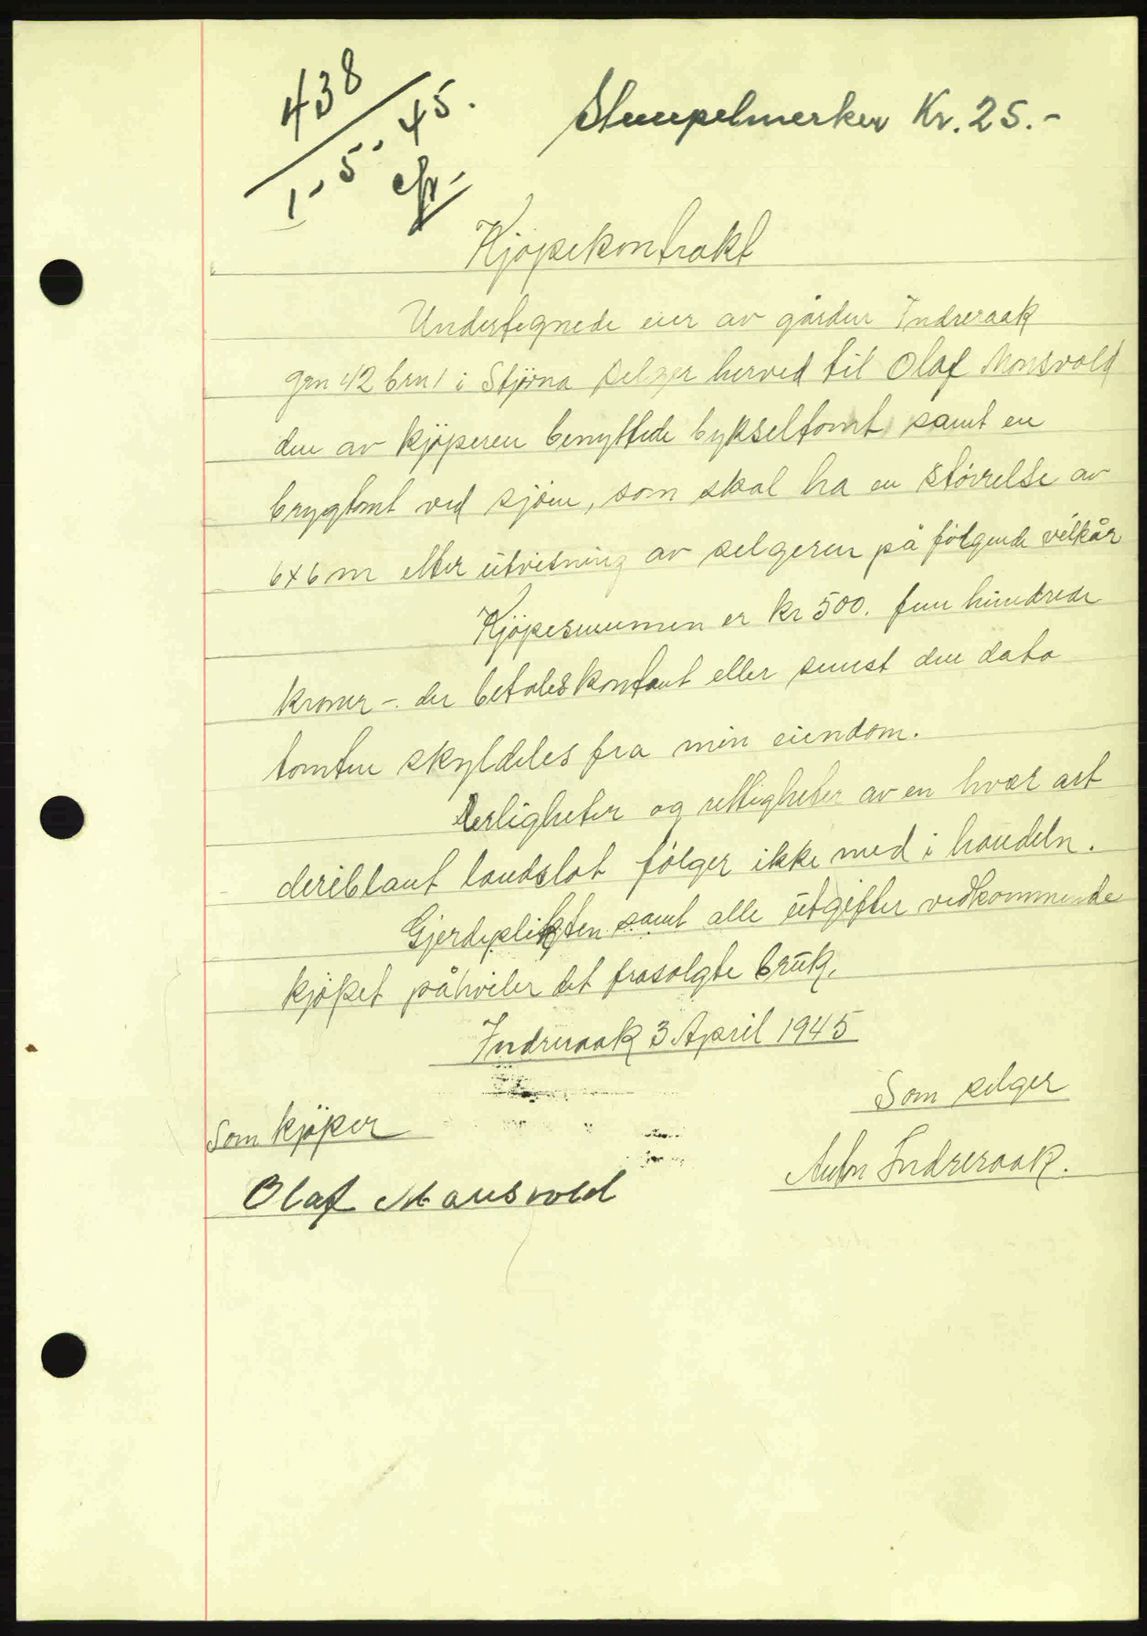 438
1-5-45.
Stempelmerker Kr. 25.-
Kjöpekontrakt
Undertegnede eier av gården Indreraak
grn 42 brn 1 i Stjörna selger herved til Olaf Monsvold
den av kjöperen benyttede bykseltomt samt en
brygtomt ved sjöen, som skal ha en störrelse av
6x6 m etter utvisning av selgeren på fölgende vilkår
Kjöpesummen er kr 500. fem hundrede
kroner -. der betales kontant eller senest den dato
tomten skyldeles fra min eiendom.
Herligheter og rettigheter av en hver art
deriblant landslot fölger ikke med i handeln.
Gjerdeplikten samt alle utgifter vedkommende
kjöpet påhviler det frasolgte bruk.
Indreraak 3 April 1945
Som selger
Som kjöper
Indreraak.
Olaf Monsvold